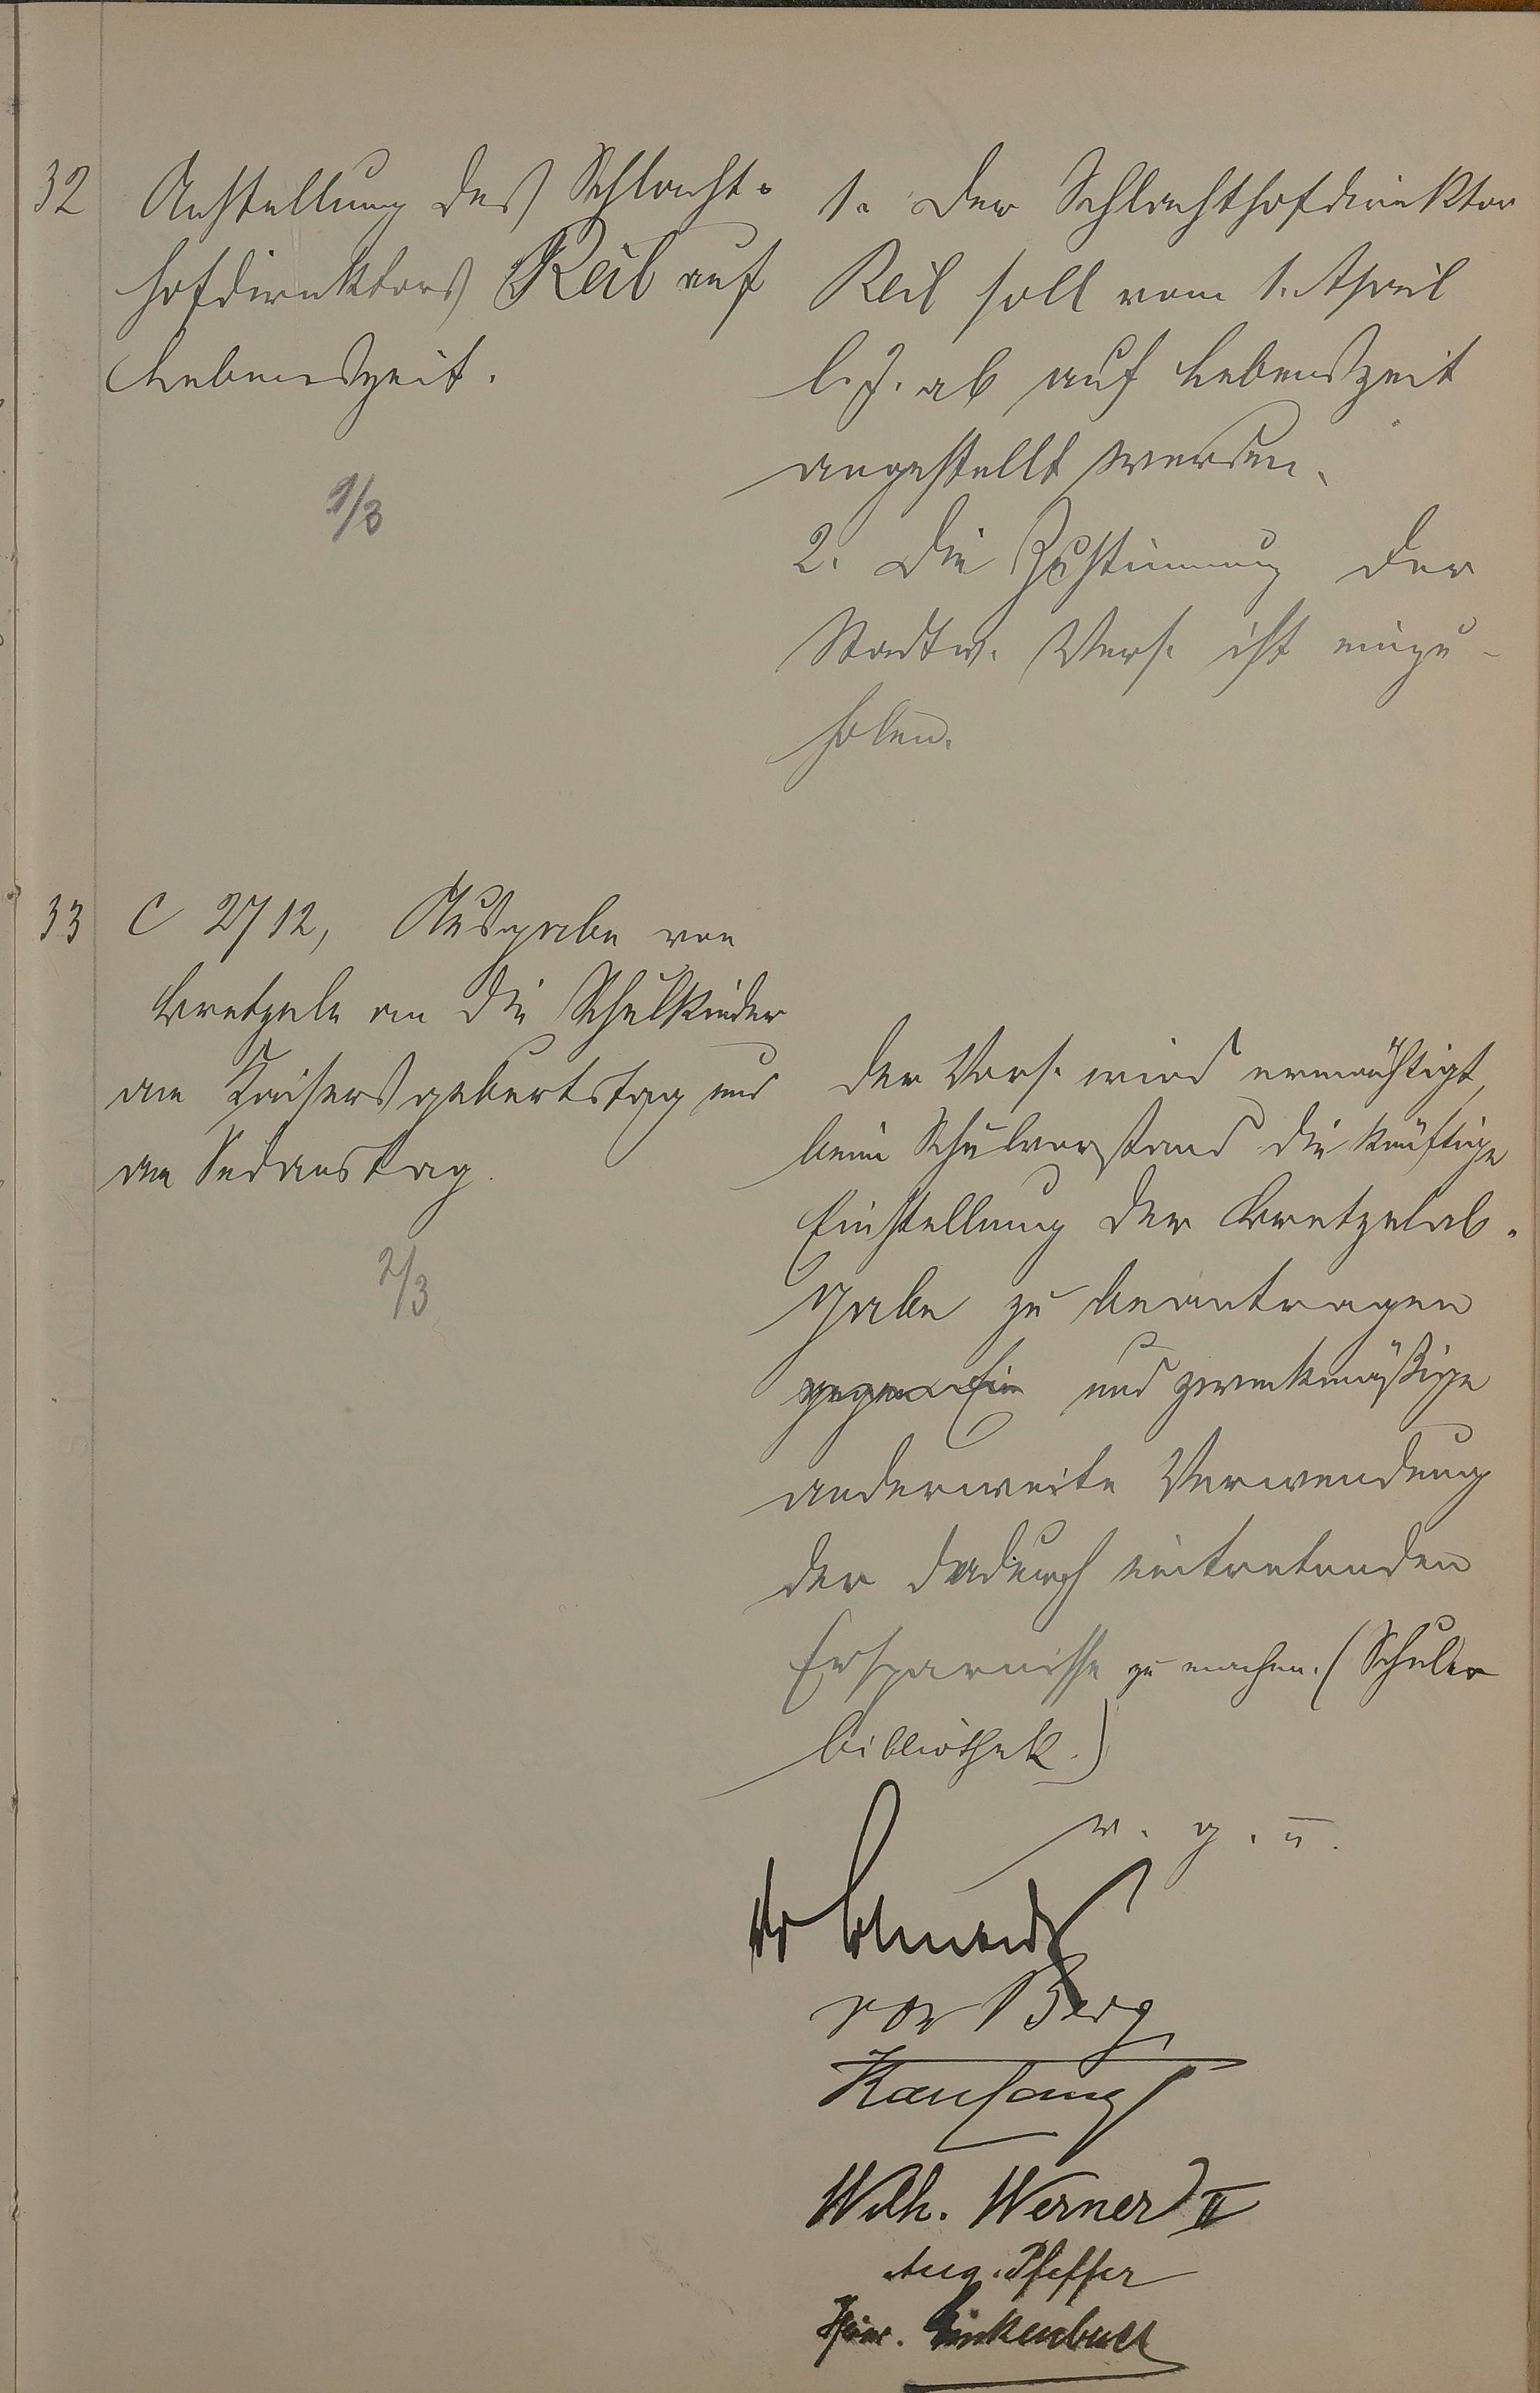 32
Anstellung des Schlacht-
hofdirektors Keil auf
Lebenszeit.
1/3
1. Der Schlachthofdirektor
Keil soll vom 1. April
l. J. ab auf Lebenszeit
angestellt werden.
2. Die Zustimmung der
Stadtv. Vers. ist einzu-
holen.
33
C 2712, Ausgabe von
Bretzeln an die Schulkinder
an Kaisersgeburtstag und
am Sedanstag.
2/3
Der Vors. wird ermächtigt,
beim Schulvorstand die künftige
Einstellung der Bretzelab-
gabe zu beantragen
gegen Ein und zweckmäßige
anderweite Verwendung
der dadurch eintretenden
Ersparnisse zu machen. (Schüler
bibliothek.)
v. g. u.
Dr
von Berg
Wilh. Werner II
Aug. Pfeffer